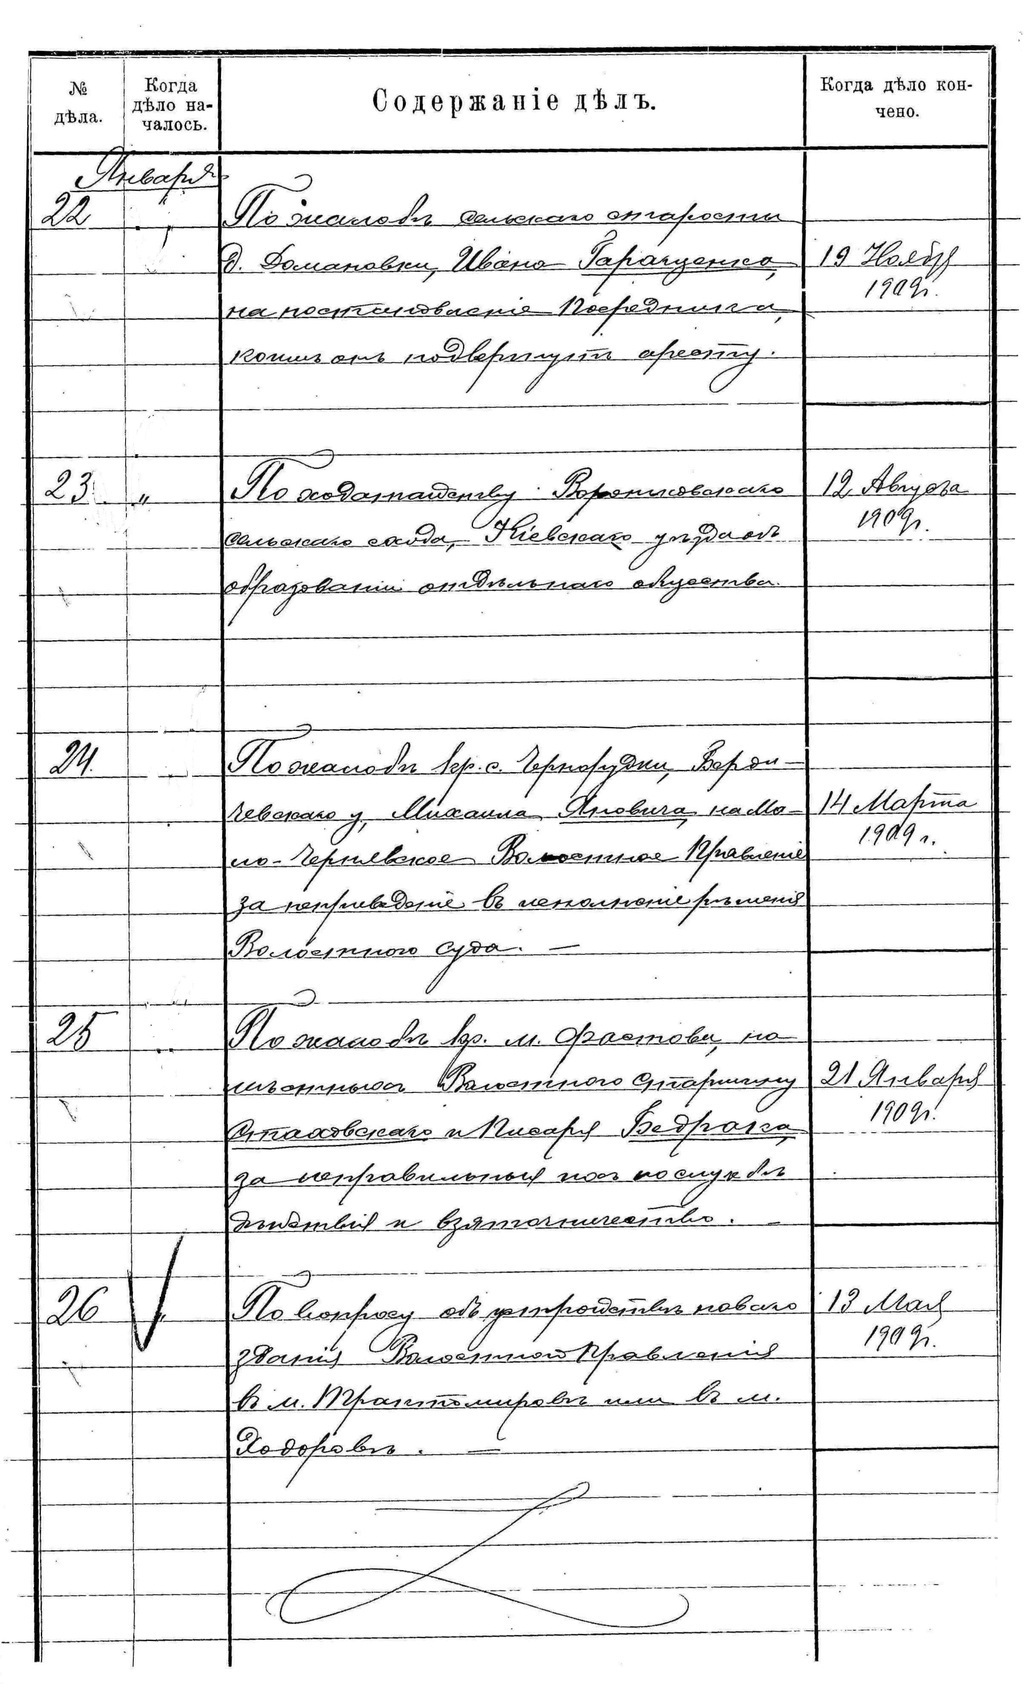 № дѣла.
Когда дѣло началось.
Содержаніе дѣлъ.
Когда дѣло кончено.
Января
22 " По жалобѣ сельскаго старосты
д. Домановки, Ивана Гаращенко, 19 Ноября
на постановленіе Посредника, 1909г.
коимъ онъ подвергнутъ аресту.
23 " По ходатайству Воропаевскаго 12 Августа
сельскаго схода, Кіевскаго уѣзда объ 1909г.
образованіи отдѣльнаго общества.
24. По жалобѣ кр. с. Чернорудки, Берди-
чевскаго у, Михаила Яновича, на Ма- 14 Марта
ло-Чернявское Волостное Правленіе 1909 г.
за неприведеніе въ исполненіе рѣшенія
Волостного Суда. —
25 " По жалобѣ кр. м. Фастова, на
мѣстныхъ Волостного Старшину 21 Января
Стаховскаго и Писаря Бедрака, 1909г.
за неправильныя ихъ по службѣ
дѣйствія и взяточничество. —
26 " По вопросу объ устройствѣ новаго 13 Мая
зданія Волостного Правленія 1909г.
въ м. Трактомировѣ или въ м.
Ходоровѣ. —